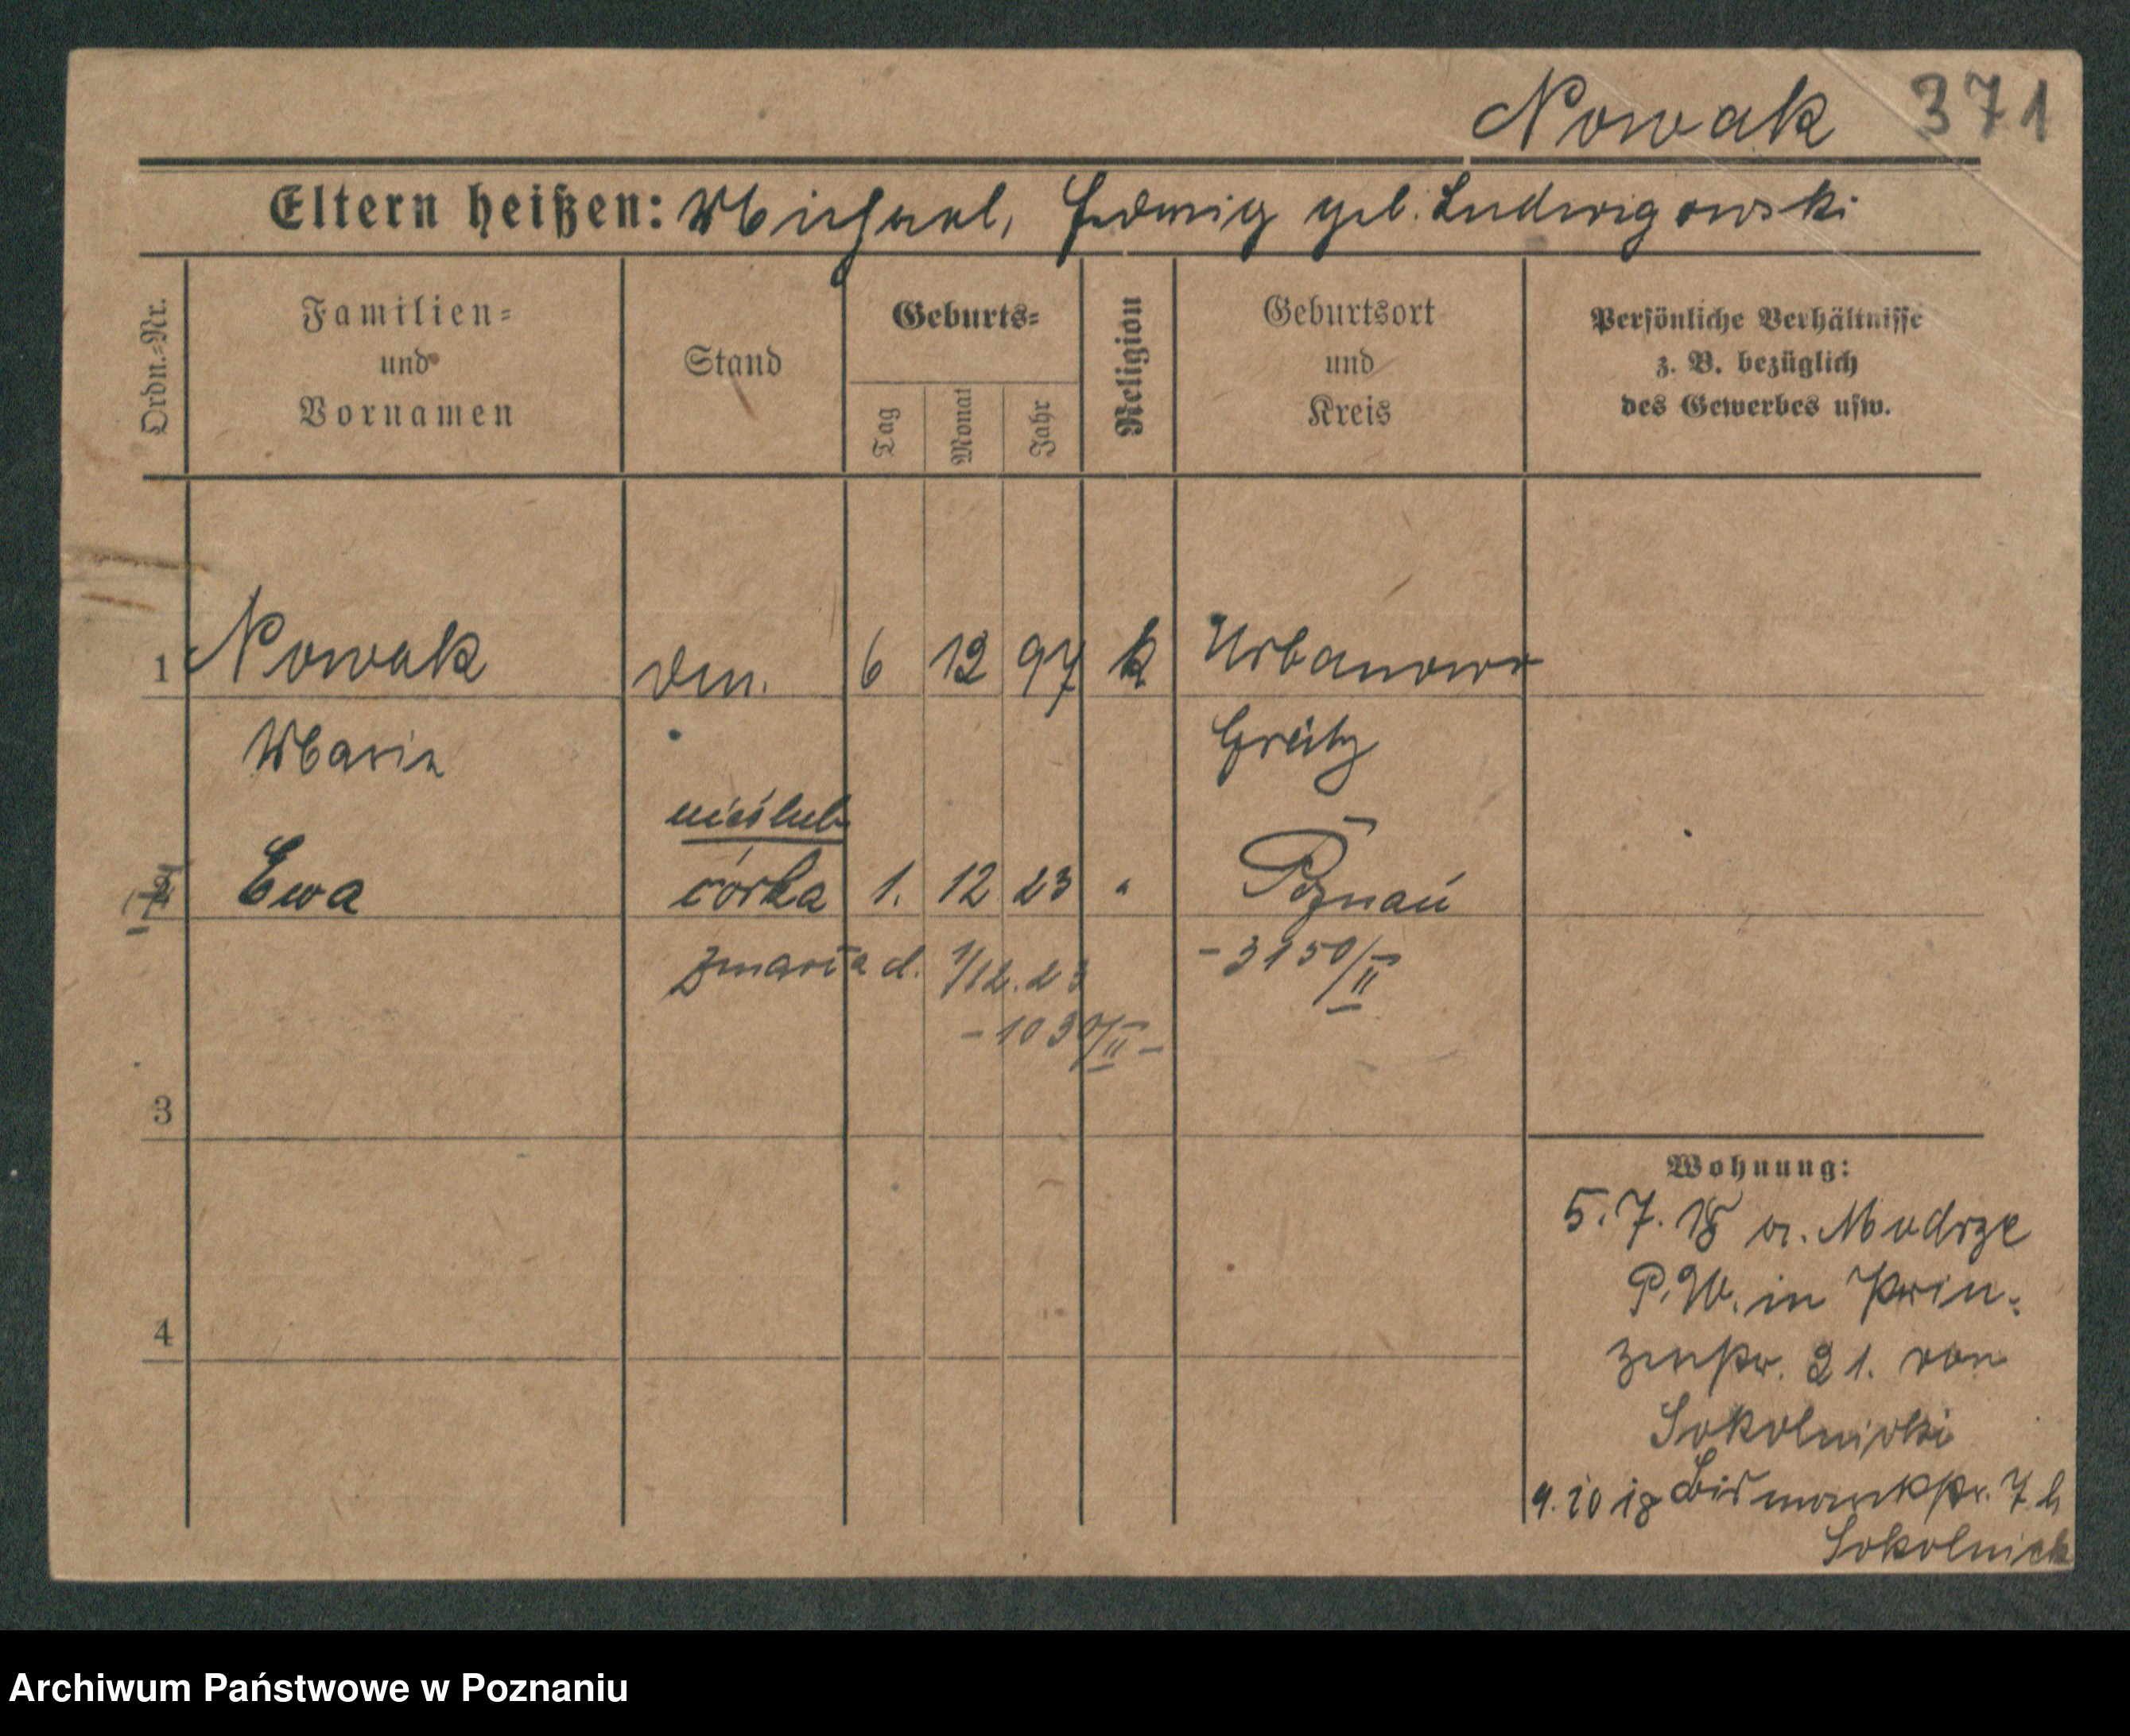 Nowak 371
Eltern heißen: Michael, Hedwig geb. Ludwigowski
Ordn.=Nr.
Familien=
und
Vornamen
Stand
Geburts=
Tag
Monat
Jahr
Religion
Geburtsort
und
Kreis
Persönliche Verhältnisse
z. B. bezüglich
des Gewerbes usw.
1 Nowak 6 12 97 k Urbanowo
Maria Grätz
nieślub
2 Ewa córka 1. 12 23 " Poznań
zmarła d. 1/12.23 - 3150/II
- 1030/II -
3
4
Wohnung:
5. 7. 18 a. Modrze
P.W. in Prin=
zenstr. 21. von
Sokolnicki
9.10 18 Bismarckstr. 7 b
Sokolnick
Archiwum Państwowe w Poznaniu